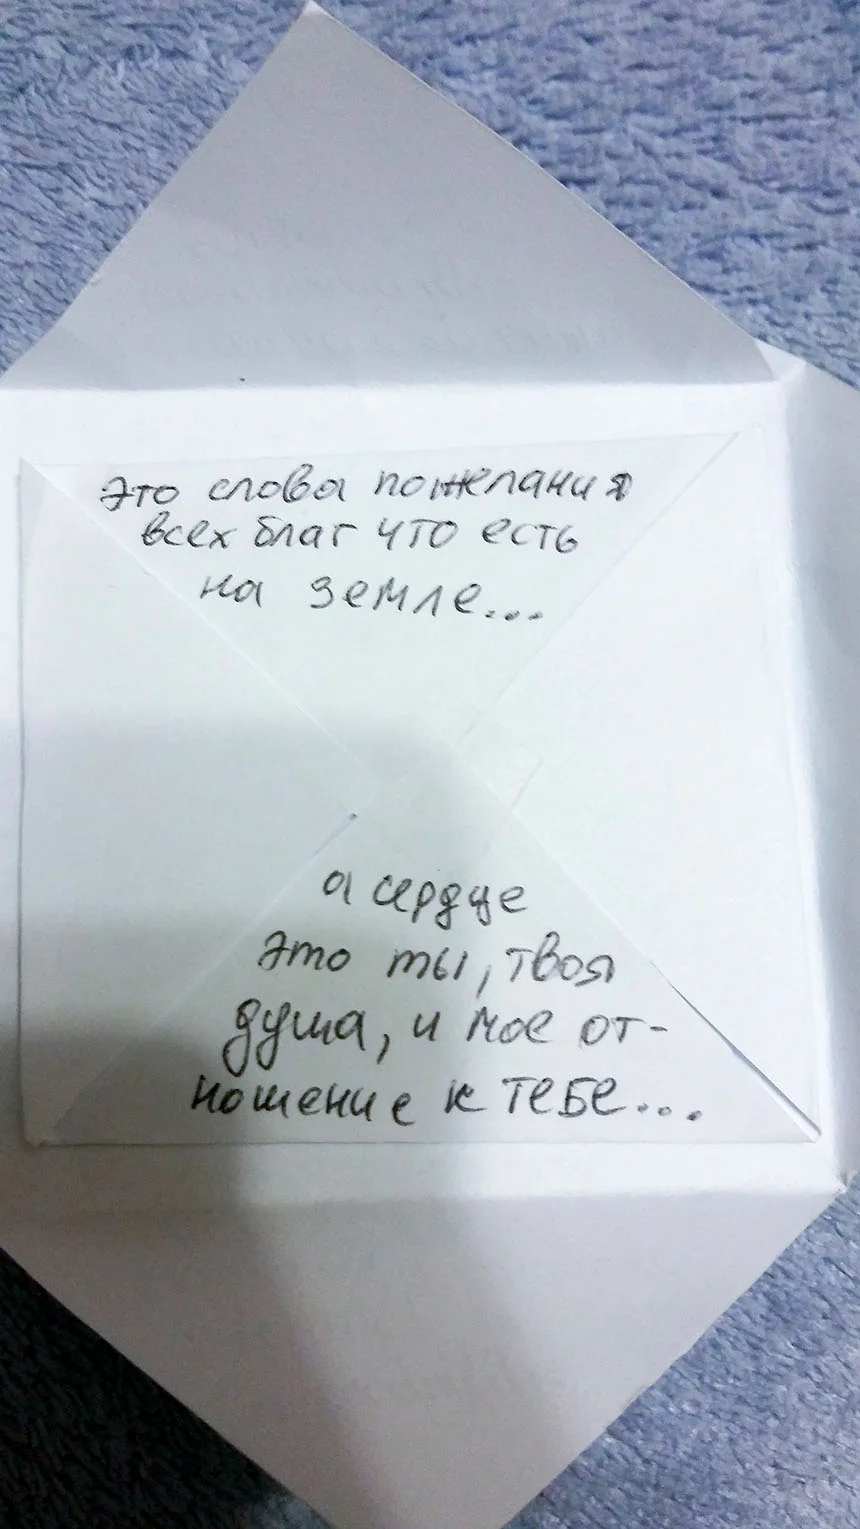 это слова пожелания
всех благ что есть
на земле...
а сердце
это ты, твоя
душа, и мое от-
ношение к тебе...